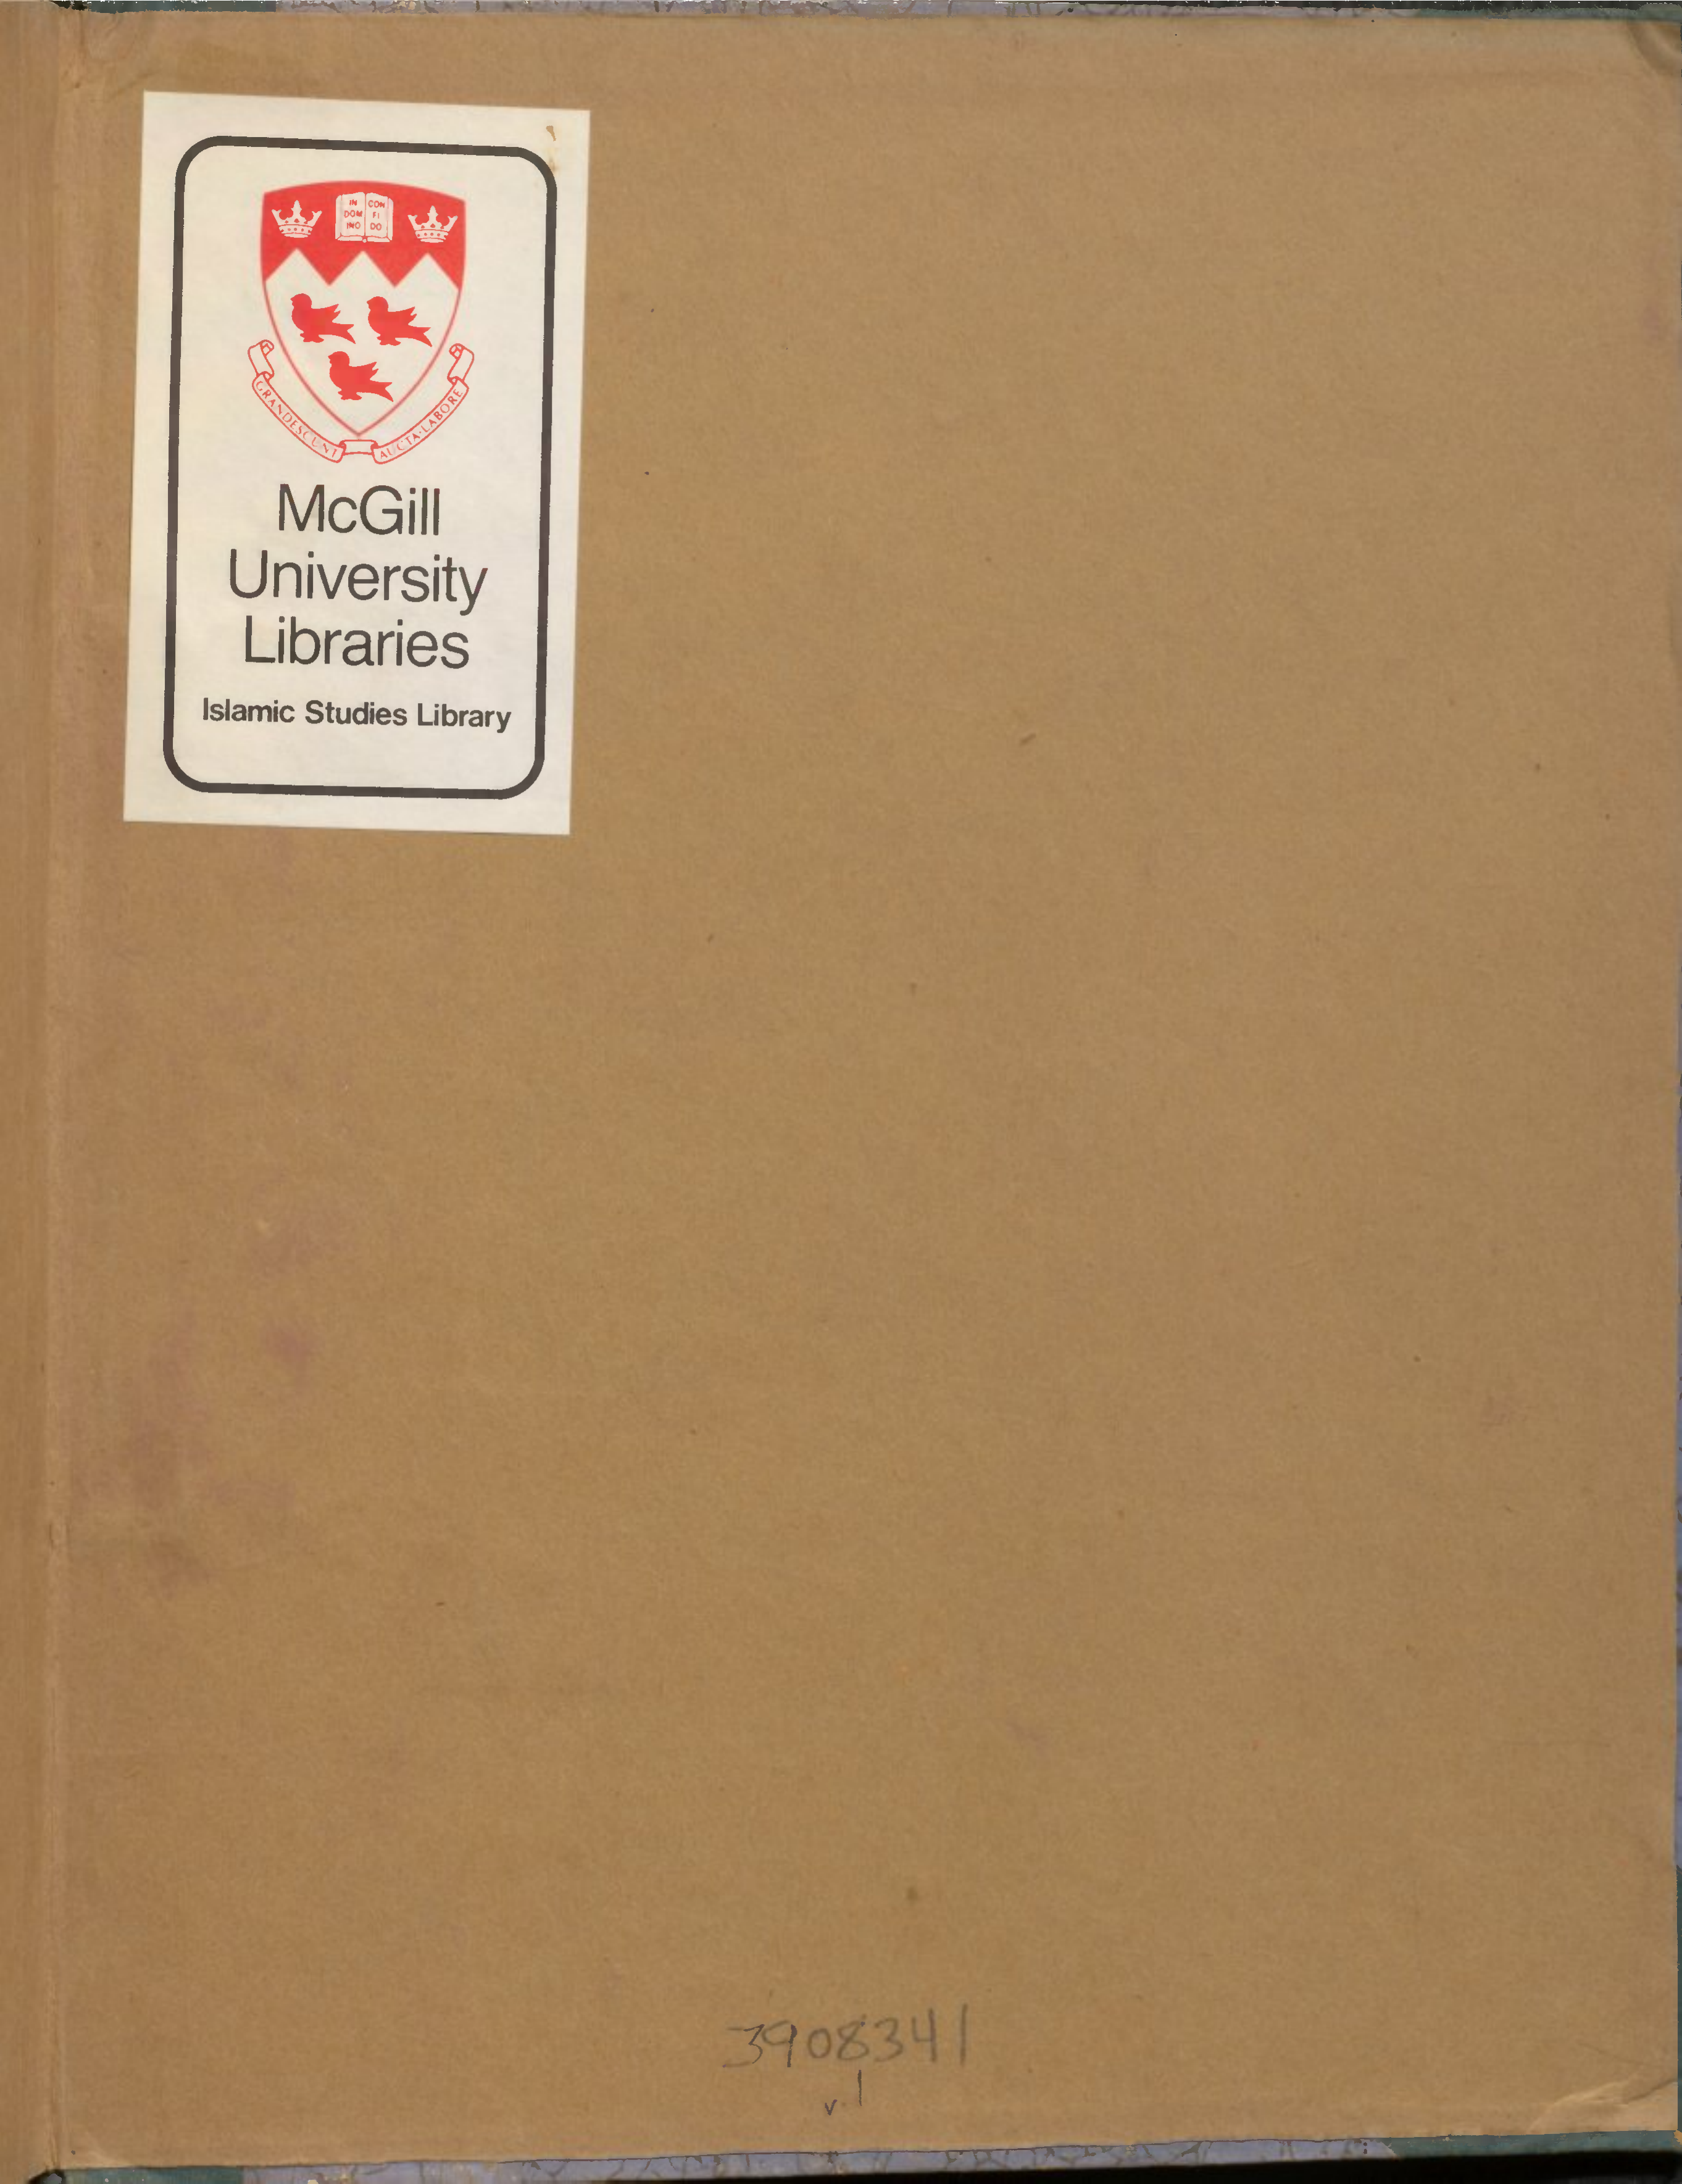 IN CON
DOM FI
INO DO
GRANDESCUNT AUCTA·LABORE
McGill
University
Libraries
Islamic Studies Library
3908341
v.1